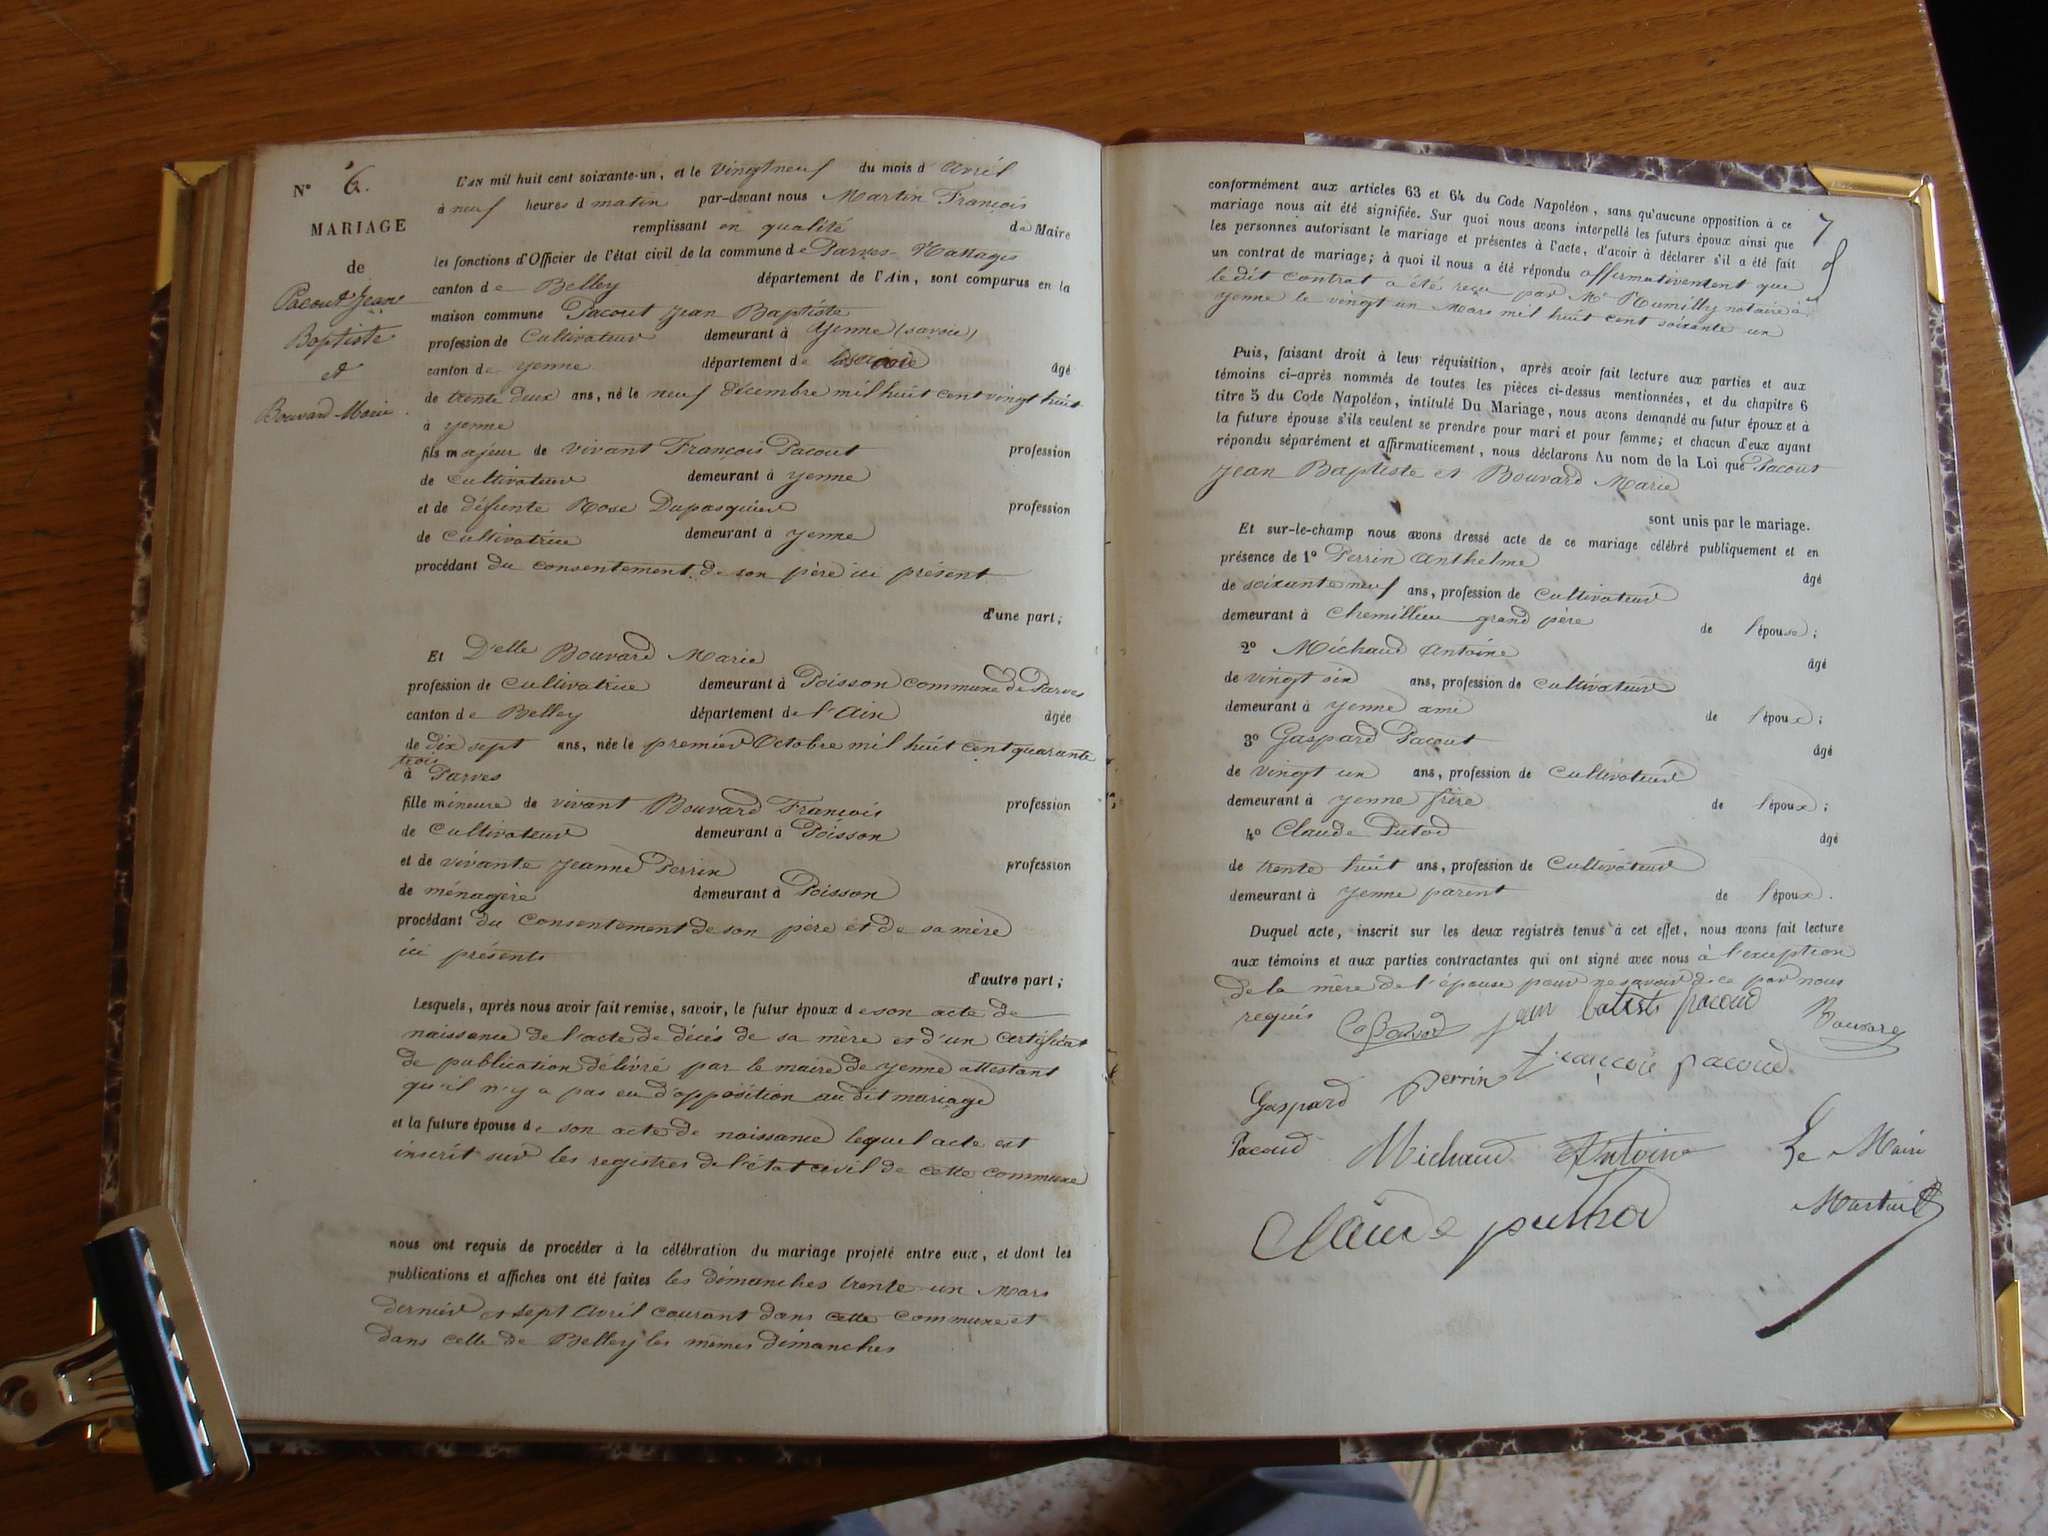 N° 6.
MARIAGE
de
Pacout Jean
Baptiste
et
Bouvard Marie
L'AN mil huit cent soixante-un, et le vingt neuf du mois d avril
à neuf heures d matin par-devant nous Martin François
remplissant en qualité de Maire
les fonctions d'Officier de l'état civil de la commune de Parves-Nattages
canton de Belley département de l'Ain, sont comparus en la
maison commune Pacout Jean Baptiste
profession de Cultivateur demeurant à Yenne (savoie)
canton de yenne département de âgé
de trente deux ans, né le neuf décembre mil huit cent vingt huit
à yenne
fils majeur de vivant François Pacout profession
de Cultivateur demeurant à yenne
et de défunte Rose Dupasquier profession
de Cultivatrice demeurant à yenne
procédant du consentement de son père ici présent
d'une part;
Et Delle Bouvard Marie
profession de Cultivatrice demeurant à Poisson commune de Parves
canton de Belley département de l'Ain âgée
de dix sept ans, née le premier Octobre mil huit cent quarante
trois
à Parves
fille mineure de vivant Bouvard François profession
de Cultivateur demeurant à Poisson
et de vivante Jeanne Perrin profession
de ménagère demeurant à Poisson
procédant du Consentement de son père et de sa mère
ici présents
d'autre part;
Lesquels, après nous avoir fait remise, savoir, le futur époux de son acte de
naissance de l'acte de décès de sa mère et d'un Certificat
de publication délivré par le maire de yenne attestant
qu'il n'y a pas eu d'opposition au dit mariage
et la future épouse de son acte de naissance lequel acte est
inscrit sur les registres de l'état civil de cette commune
nous ont requis de procéder à la célébration du mariage projeté entre eux, et dont les
publications et affiches ont été faites les dimanches trente un Mars
dernier et sept Avril courant dans cette commune et
dans celle de Belley les mêmes dimanches
7
conformément aux articles 63 et 64 du Code Napoléon, sans qu'aucune opposition à ce
mariage nous ait été signifiée. Sur quoi nous avons interpellé les futurs époux ainsi que
les personnes autorisant le mariage et présentes à l'acte, d'avoir à déclarer s'il a été fait
un contrat de mariage; à quoi il nous a été répondu affirmativement que
le dit contrat a été reçu par Me Rumilly notaire à
yenne le vingt un Mars mil huit cent soixante un
Puis, faisant droit à leur réquisition, après avoir fait lecture aux parties et aux
témoins ci-après nommés de toutes les pièces ci-dessus mentionnées, et du chapitre 6
titre 5 du Code Napoléon, intitulé Du Mariage, nous avons demandé au futur époux et à
la future épouse s'ils veulent se prendre pour mari et pour femme; et chacun d'eux ayant
répondu séparément et affirmativement, nous déclarons Au nom de la Loi que Pacout
Jean Baptiste et Bouvard Marie
sont unis par le mariage.
Et sur-le-champ nous avons dressé acte de ce mariage célébré publiquement et en
présence de 1° Perrin Anthelme âgé
de soixante neuf ans, profession de Cultivateur
demeurant à Chemillieu grand père de l'épouse;
2° Michaud Antoine âgé
de vingt six ans, profession de Cultivateur
demeurant à yenne ami de l'époux;
3° Gaspard Pacout âgé
de vingt un ans, profession de Cultivateur
demeurant à yenne frère de l'époux;
4° Claude Putod âgé
de trente huit ans, profession de Cultivateur
demeurant à yenne parent de l'époux.
Duquel acte, inscrit sur les deux registres tenus à cet effet, nous avons fait lecture
aux témoins et aux parties contractantes qui ont signé avec nous à l'exception
de la mère de l'épouse pour ne savoir de ce par nous
requis jean batiste pacoud Bouvard
Gaspard perrin françois pacoud
Pacoud Michaud Antoine Le Maire
Claude puthod Martin